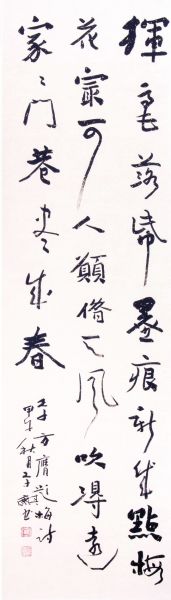 揮毫落紙墨痕新幾點梅
花最可人願借天風吹得遠
家〻門巷盡成春
李方膺題梅詩
甲午秋月